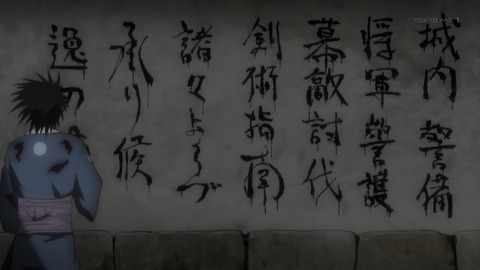 TOKYO MX1
城内警備
将軍警護
幕敵討伐
剣術指南
諸々よろづ
承り候
逸刀